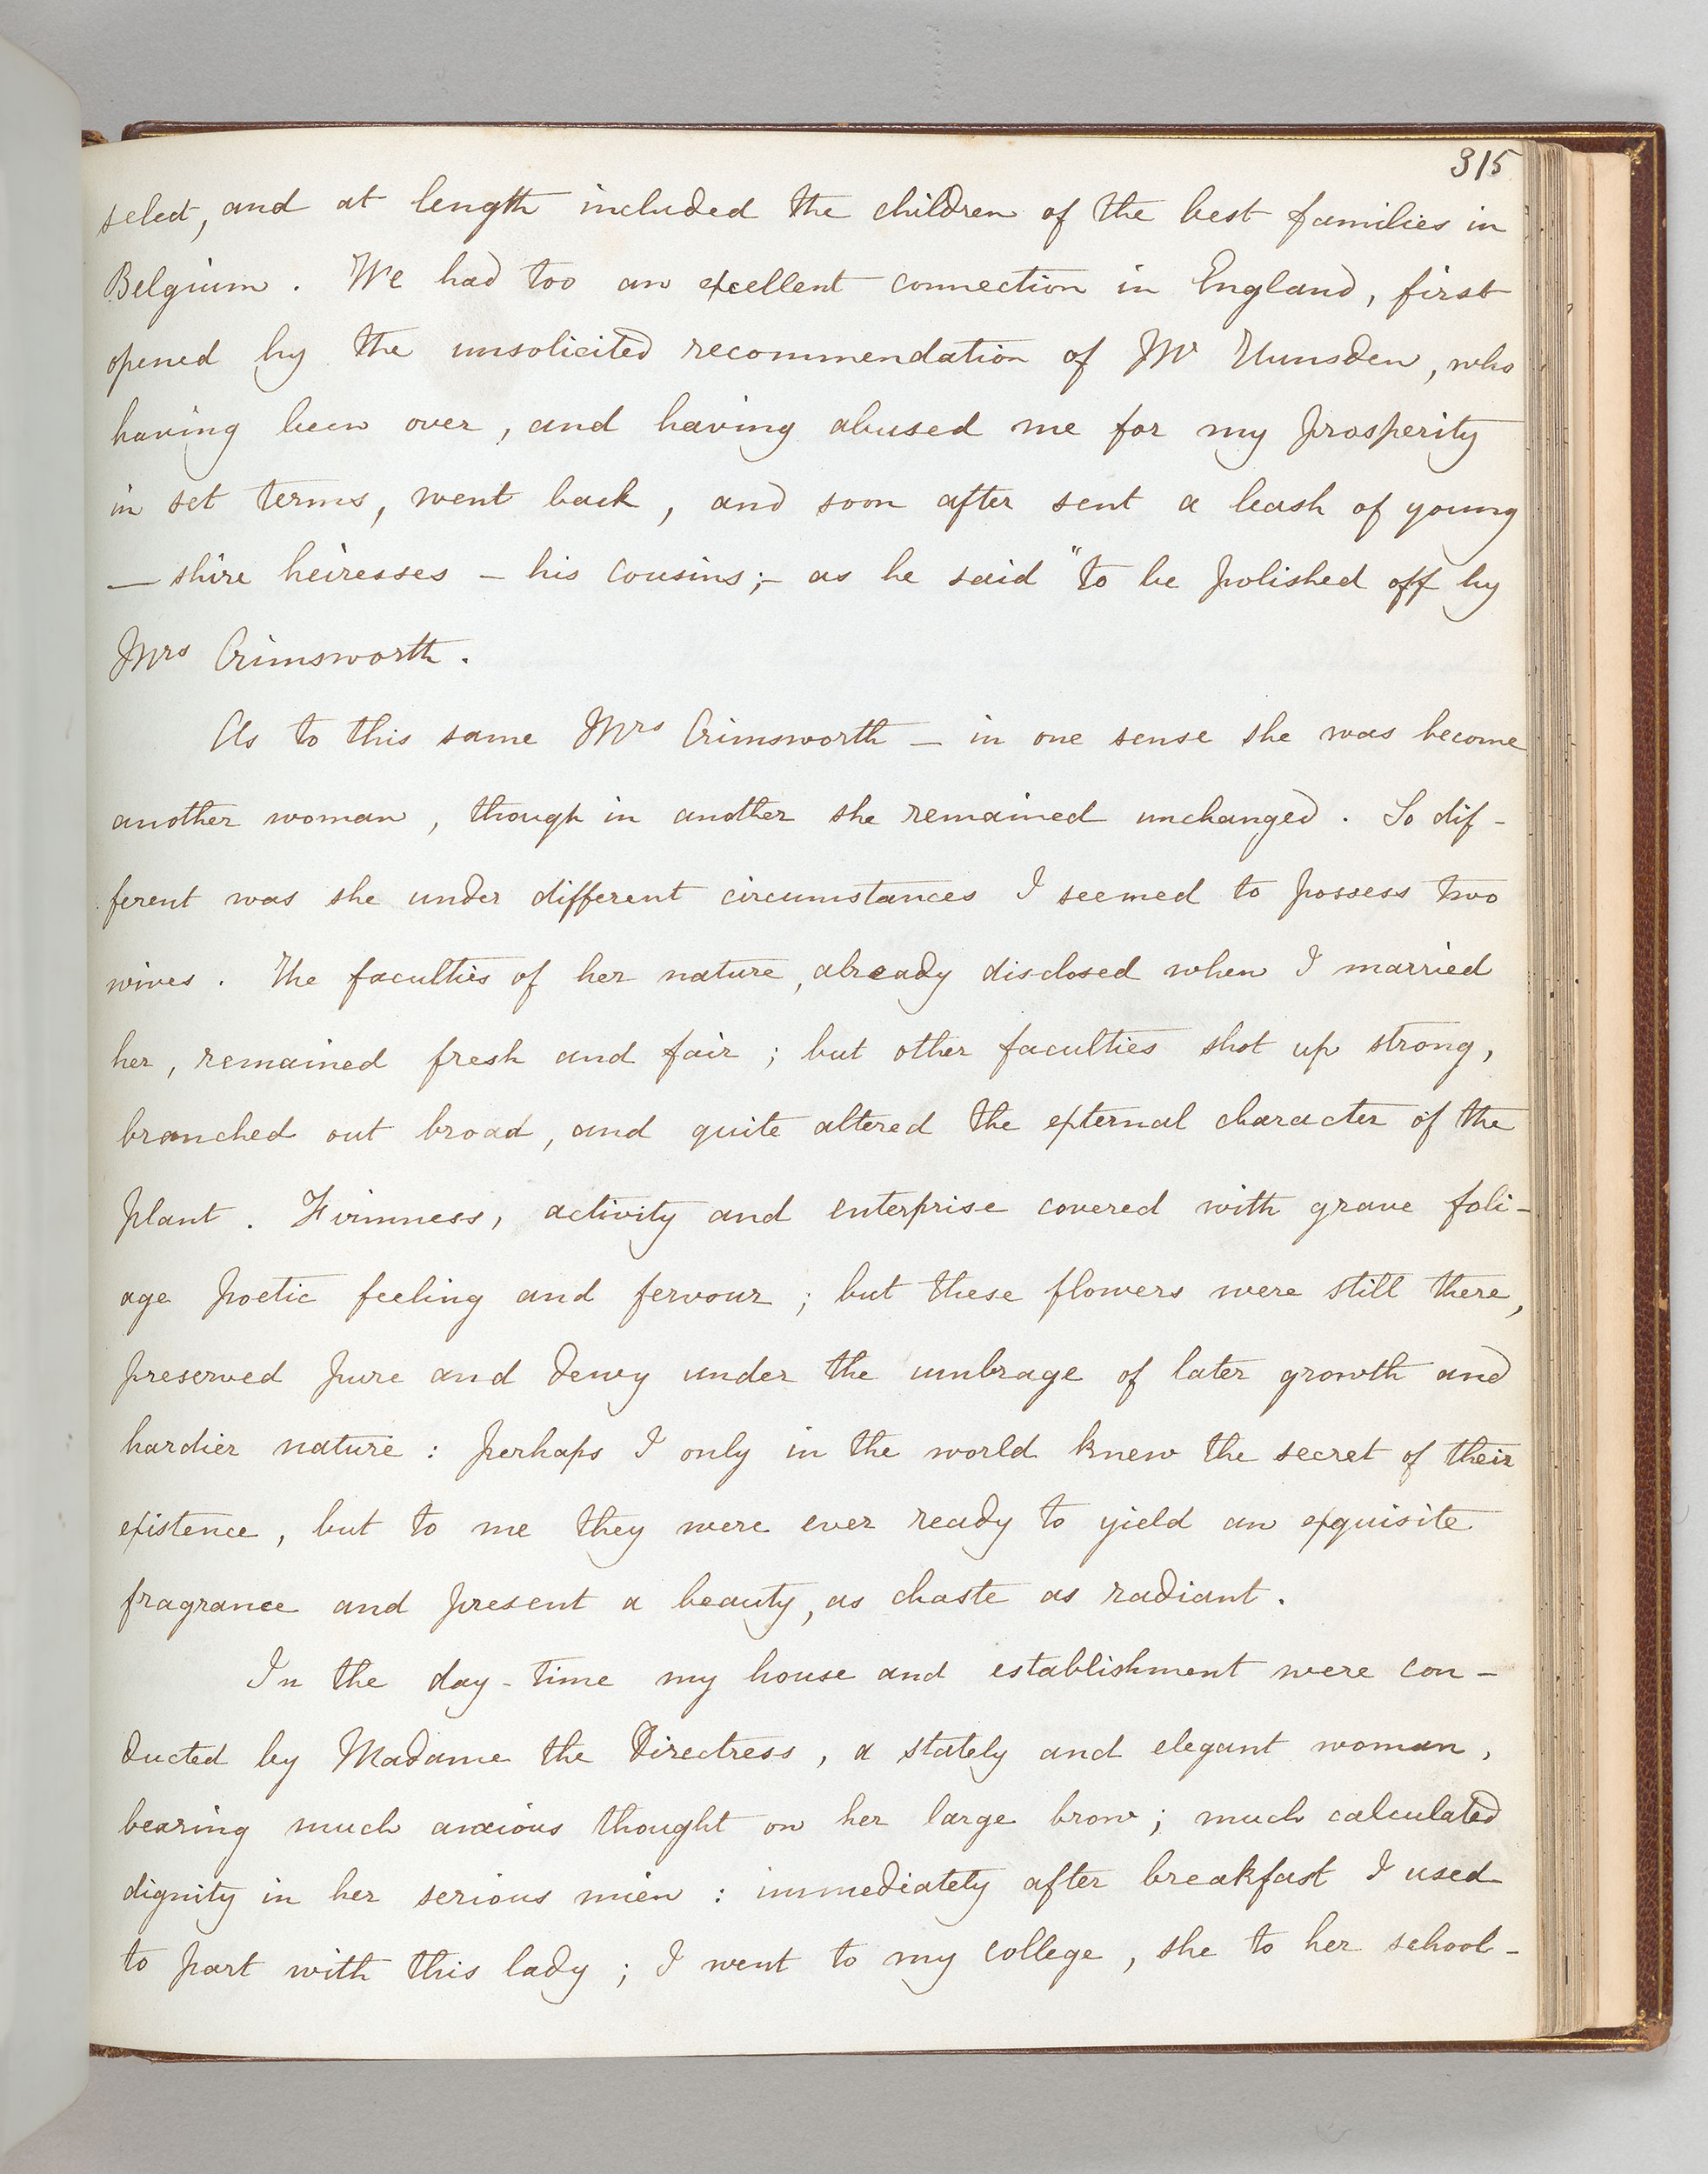 315
select, and at length included the children of the best families in
Belgium. We had too an excellent connection in England, first
opened by the unsolicited recommendation of Mr Hunsden, who
having been over, and having abused me for my prosperity
in set terms, went back, and soon after sent a leash of young
— shire heiresses – his cousins; – as he said "to be polished off by
Mrs Crimsworth.
As to this same Mrs Crimsworth – in one sense she was become
another woman, though in another she remained unchanged. So dif-
ferent was she under different circumstances I seemed to possess two
wives. The faculties of her nature, already disclosed when I married
her, remained fresh and fair; but other faculties shot up strong,
branched out broad, and quite altered the external character of the
plant. Firmness, activity and enterprise covered with grave foli-
age poetic feeling and fervour; but these flowers were still there,
preserved pure and dewy under the umbrage of later growth and
hardier nature: perhaps I only in the world knew the secret of their
existence, but to me they were ever ready to yield an exquisite
fragrance and present a beauty, as chaste as radiant.
In the day-time my house and establishment were con-
ducted by Madame the Directress, a stately and elegant woman,
bearing much anxious thought on her large brow; much calculated
dignity in her serious mien: immediately after breakfast I used
to part with this lady; I went to my college, she to her school-